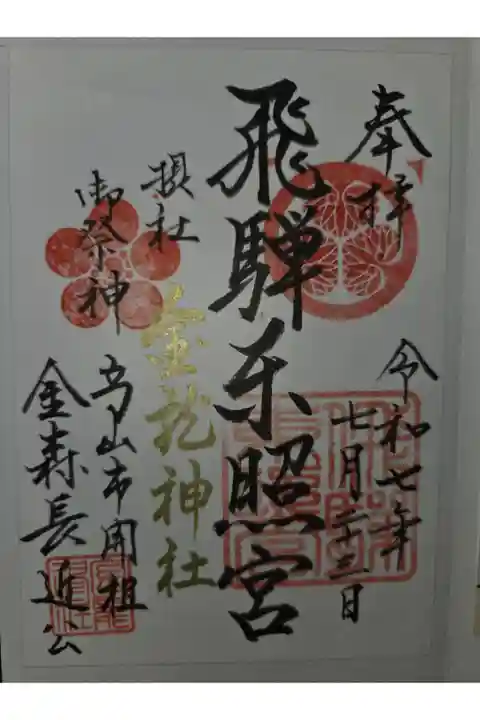 奉拝
令和七年
七月二十三日
飛騨東照宮
摂社
金龍神社
御祭神
高山市開祖
金森長近公